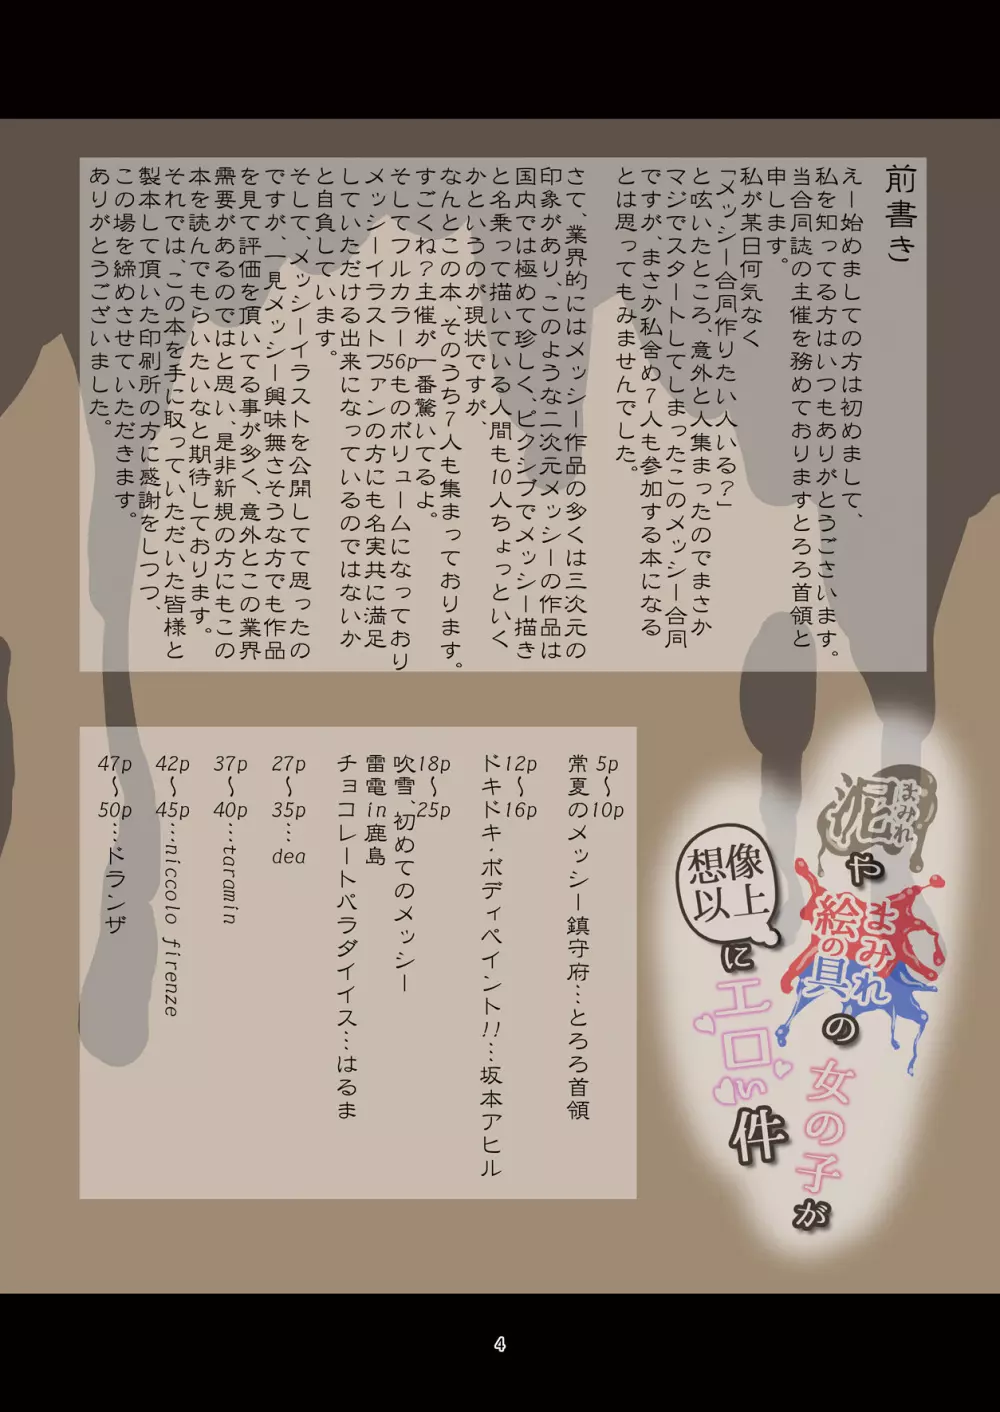 前書き
えー始めましての方は初めまして、
私を知ってる方はいつもありがとうございます。
当合同誌の主催を務めておりますとろろ首領と
申します。
私が某日何気なく
「メッシー合同作りたい人いる？」
と呟いたところ、意外と人集まったのでまさか
マジでスタートしてしまったこのメッシー合同
ですが、まさか私含め7人も参加する本になる
とは思ってもみませんでした。
さて、業界的にはメッシー作品の多くは三次元の
印象があり、このような二次元メッシーの作品は
国内では極めて珍しく、ピクシブでメッシー描き
と名乗って描いている人間も10人ちょっといく
かというのが現状ですが、
なんとこの本、そのうち7人も集まっております。
すごくね？主催が一番驚いてるよ。
そしてフルカラー56pものボリュームになっており
メッシーイラストファンの方にも名実共に満足
していただける出来になっているのではないか
と自負しています。
そして、メッシーイラストを公開してて思ったの
ですが、一見メッシー興味無さそうな方でも作品
を見て評価を頂いてる事が多く、意外とこの業界
需要があるのではと思い、是非新規の方にもこの
本を読んでもらいたいなと期待しております。
それでは、この本を手に取っていただいた皆様と
製本して頂いた印刷所の方に感謝をしつつ、
この場を締めさせていただきます。
ありがとうございました。
泥まみれや
絵の具まみれの
女の子が
想像以上に
エロい件
5p～10p
常夏のメッシー鎮守府…とろろ首領
12p～16p
ドキドキ・ボディペイント!!…坂本アヒル
18p～25p
吹雪、初めてのメッシー
雷電in鹿島
チョコレートパラダイイス…はるま
27p～35p…dea
37p～40p…taramin
42p～45p…niccolo firenze
47p～50p…ドランザ
4